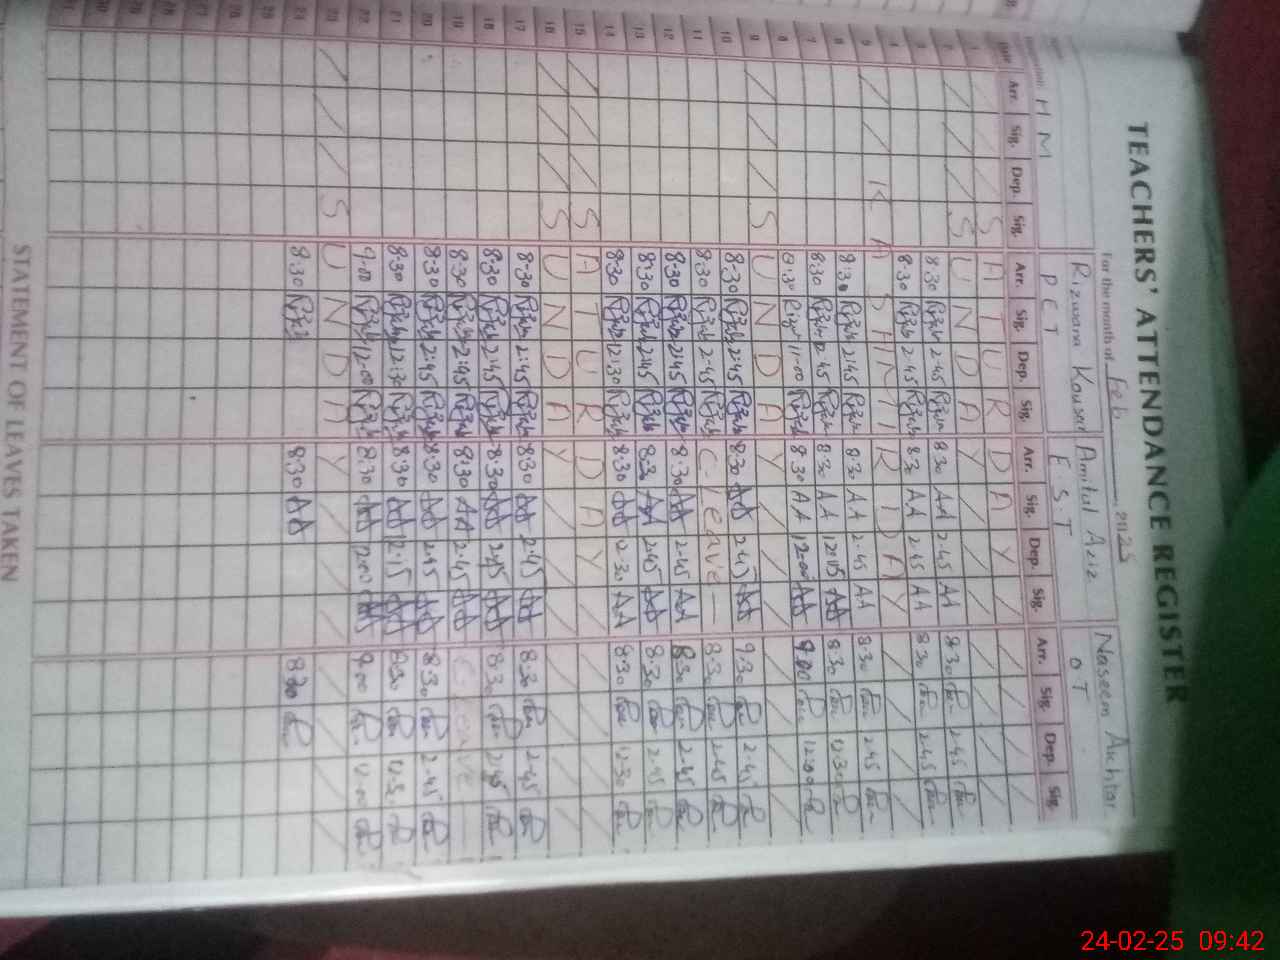 TEACHERS' ATTENDANCE REGISTER
For the month of Feb. 2025
Rizwana Kouser Amitul Aziz Naseem Akhtar
H M P E T E S T O T
Date Arr. Sig. Dep. Sig. Arr. Sig. Dep. Sig. Arr. Sig. Dep. Sig. Arr. Sig. Dep. Sig.
1 S A T U R D A Y
2 S U N D A Y
3 8:30 2:45 8:30 AA 2:45 AA 8:30 2:45
4 8:30 2:45 8:30 AA 2:45 AA 8:30 2:45
5 K A S H M I R D A Y
6 8:30 2:45 8:30 AA 2:45 AA 8:30 2:45
7 8:30 2:45 8:30 AA 12:15 AA 8:30 12:30
8 8:30 11:00 8:30 AA 12:00 AA 9:00 12:00
9 S U N D A Y
10 8:30 2:45 8:30 AA 2:45 AA 9:30 2:45
11 8:30 2:45 C-Leave 8:30 2:45
12 8:30 2:45 8:30 AA 2:45 AA 8:30 2:45
13 8:30 2:45 8:30 AA 2:45 AA 8:30 2:45
14 8:30 12:30 8:30 AA 12:30 AA 8:30 12:30
15 S A T U R D A Y
16 S U N D A Y
17 8:30 2:45 8:30 AA 2:45 AA 8:30 2:45
18 8:30 2:45 8:30 AA 2:45 AA 8:30 2:45
19 8:30 2:45 8:30 AA 2:45 AA C-Leave
20 8:30 2:45 8:30 AA 2:45 AA 8:30 2:45
21 8:30 12:30 8:30 AA 12:15 AA 8:30 12:30
22 9:00 12:00 8:30 AA 12:00 AA 9:00 12:00
23 S U N D A Y
24 8:30 8:30 AA 8:30
25
26
27
28
29
30
STATEMENT OF LEAVES TAKEN
24-02-25 09:42